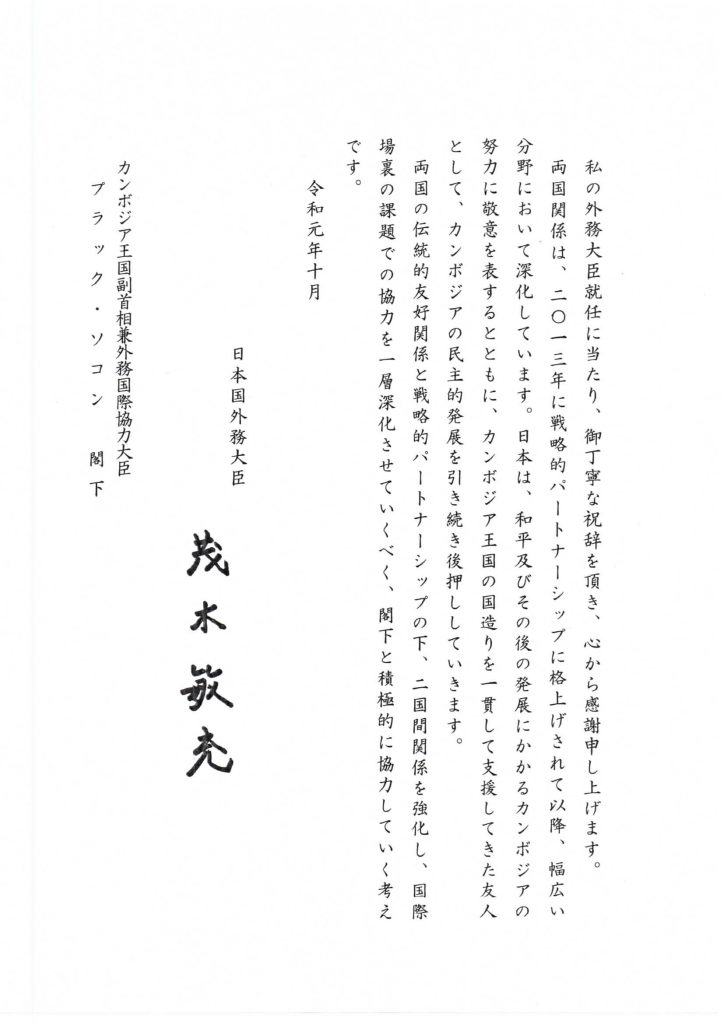 私の外務大臣就任に当たり、御丁寧な祝辞を頂き、心から感謝申し上げます。
両国関係は、二〇一三年に戦略的パートナーシップに格上げされて以降、幅広い
分野において深化しています。日本は、和平及びその後の発展にかかるカンボジアの
努力に敬意を表するとともに、カンボジア王国の国造りを一貫して支援してきた友人
として、カンボジアの民主的発展を引き続き後押ししていきます。
両国の伝統的友好関係と戦略的パートナーシップの下、二国間関係を強化し、国際
場裏の課題での協力を一層深化させていくべく、閣下と積極的に協力していく考え
です。
令和元年十月
日本国外務大臣
茂木敏充
カンボジア王国副首相兼外務国際協力大臣
プラック・ソコン 閣下